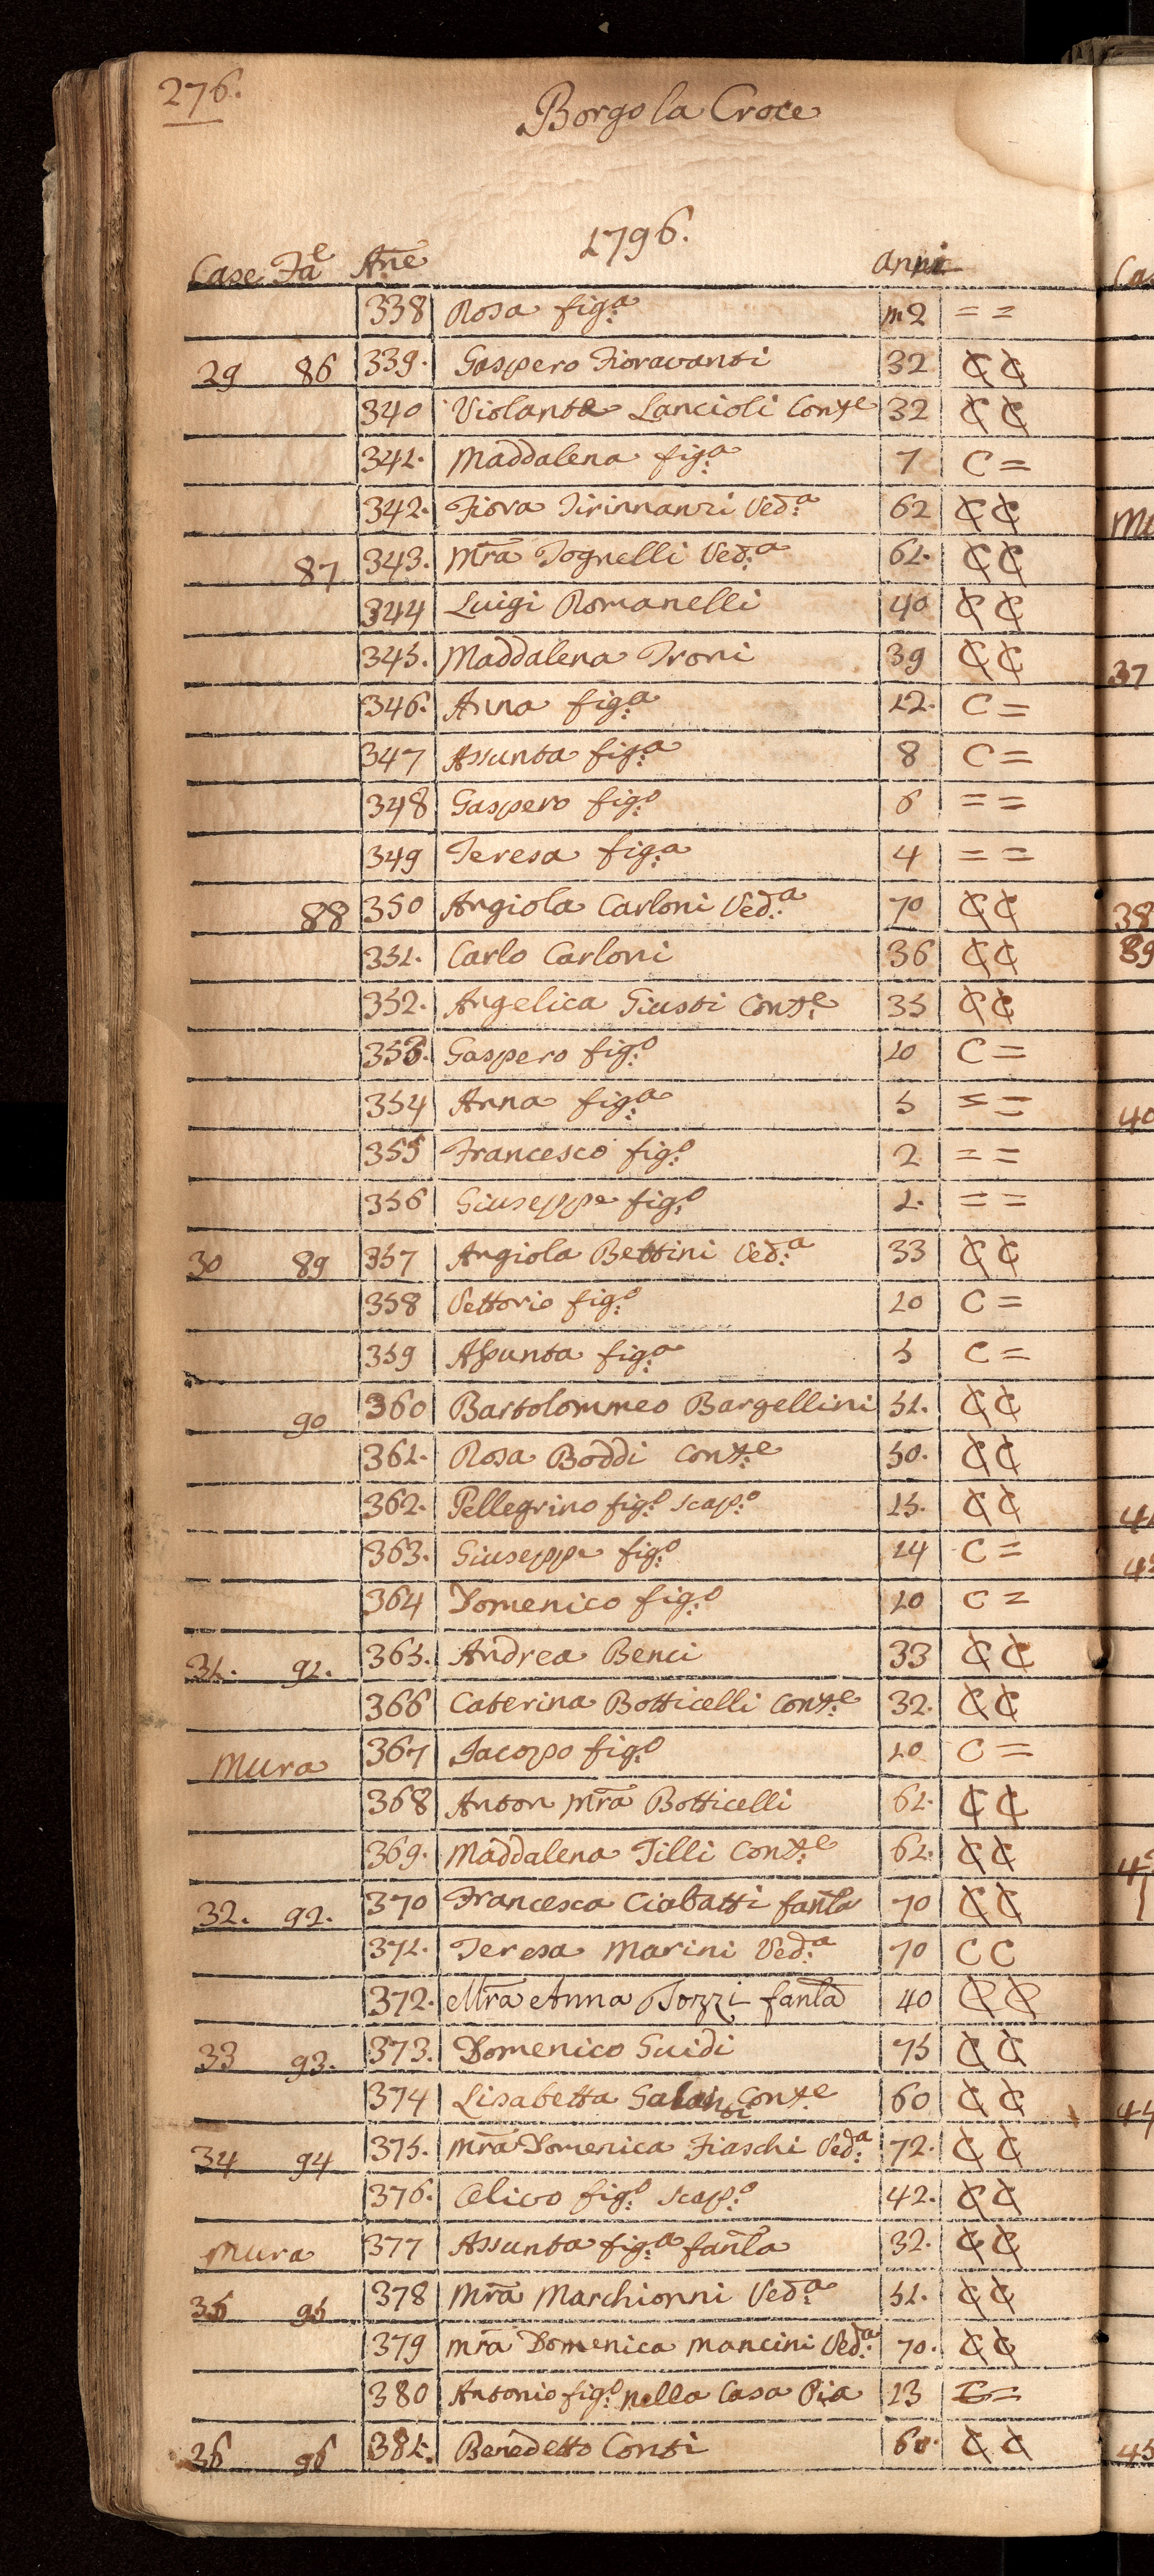 276.
Borgo la Croce
1796.
Case Fae Ane anni
338 Rosa fig.a m2 = =
29 86 339. Gaspero Fioravanti 32 C C
340 Violante Lancioli Conte 32 C C
341. Maddalena fig.a 7 C =
342. Fiora Tirinnanzi Ved.a 62 C C
87 343. Mra Tognelli Ved.a 61. C C
344 Luigi Romanelli 40 C C
345. Maddalena Troni 39 C C
346. Anna fig.a 12. C =
347 Assunta fig.a 8 C =
348 Gaspero fig.o 6 = =
349 Teresa fig.a 4 = =
88 350 Angiola Carloni Ved.a 70 C C
351. Carlo Carloni 36 C C
352. Angelica Giusti Cont.e 35 C C
353. Gaspero fig.o 10 C =
354 Anna fig.a 5 = =
355 Francesco fig.o 2 = =
356 Giuseppe fig.o 1. = =
30 89 357 Angiola Bettini Ved.a 33 C C
358 Vettorio fig.o 10 C =
359 Assunta fig.a 5 C =
90 360 Bartolommeo Bargellini 51. C C
361. Rosa Boddi Cont.e 50. C C
362. Pellegrino fig.o scap.o 15. C C
363. Giuseppe fig.o 14 C =
364 Domenico fig.o 10 C =
31. 91. 365. Andrea Benci 33 C C
366 Caterina Botticelli Cont.e 32. C C
Mura 367 Jacopo fig.o 10 C =
368 Anton Mra Botticelli 61. C C
369. Maddalena Tilli Cont.e 61. C C
32. 92. 370 Francesca Ciabatti fanla 70 C C
371. Teresa Marini Ved.a 70 C C
372. Mra Anna Tozzi fanla 40 C C
33 93. 373. Domenico Guidi 75 C C
374 Lisabetta Galanti Cont.e 60 C C
34 94 375. Mra Domenica Fiaschi Ved.a 72. C C
376. Olivo fig.o scap.o 42. C C
Mura 377 Assunta fig.a fanla 32. C C
35 95 378 Mra Marchionni Ved.a 51. C C
379 Mra Domenica Mancini Ved.a 70. C C
380 Antonio fig.o nella Casa Pia 13 C =
36 96 381. Benedetto Conti 60. C C